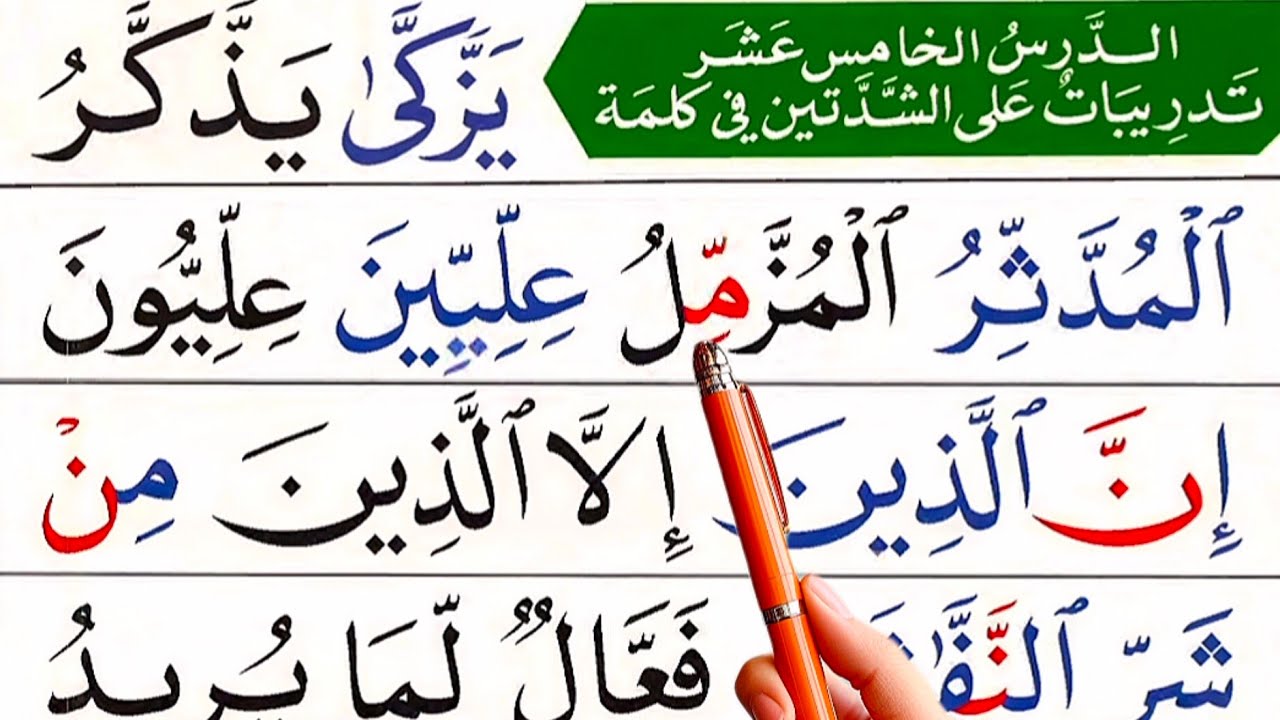 الدَّرسُ الخامس عَشَر
تَدرِيبَاتٌ عَلى الشَّدَّتين في كلمَة
يَزَّكَّىٰ يَذَّكَّرُ
ٱلْمُدَّثِّرُ ٱلْمُزَّمِّلُ عِلِّيِّينَ عِلِّيُّونَ
إِنَّ ٱلَّذِينَ إِلَّا ٱلَّذِينَ مِنْ
شَرِّ فَعَّالٌ لِّمَا يُرِيدُ